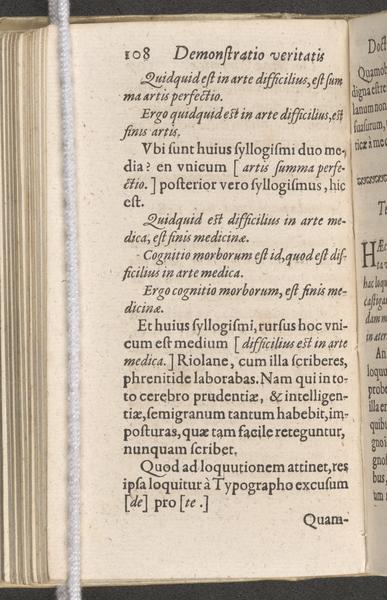 108 Demonſtratio veritatis
Quidquid eſt in arte difficilius, eſt ſum
ma artis perfectio.
Ergo quidquid est in arte difficilius, eſt
finis artis.
Vbi ſunt huius ſyllogiſmi duo me-
dia? en vnicum [ artis ſumma perfe-
ctio. ] poſterior vero ſyllogiſmus, hic
eſt.
Quidquid est difficilius in arte me-
dica, eſt finis medicinæ.
Cognitio morborum eſt id, quod eſt dif-
ficilius in arte medica.
Ergo cognitio morborum, eſt finis me-
dicinæ.
Et huius ſyllogiſmi, rurſus hoc vni-
cum eſt medium [ difficilius est in arte
medica. ] Riolane, cum illa ſcriberes,
phrenitide laborabas. Nam qui in to-
to cerebro prudentiæ, & intelligen-
tiæ, ſemigranum tantum habebit, im-
poſturas, quæ tam facile reteguntur,
nunquam ſcribet.
Quod ad loquutionem attinet, res
ipſa loquitur à Typographo excuſum
[de] pro [te .]
Quam-
Quamob
digna eſt re
lanum non
ſuaſurum,
ticæ à me
hac loqu
caſtiga
dam
in
An
loquu
probe
illa er
quibu
gno
bus,